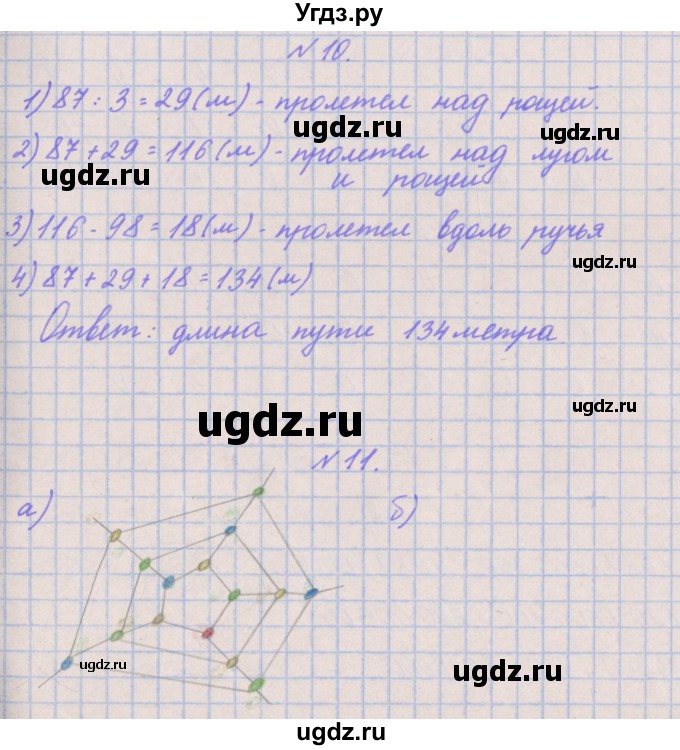 Угдз.ру
№ 10.
1) 87 : 3 = 29 (м) - пролетел над рощей.
ugdz.ru
ugdz.ru
2) 87 + 29 = 116 (м) - пролетел над лугом
ugdz.ru
и рощей
3) 116 - 98 = 18 (м) - пролетел вдоль ручья
ugdz.ru
4) 87 + 29 + 18 = 134 (м)
Ответ: длина пути 134 метра
ugdz.ru
ugdz.ru
№ 11.
а) б)
ugdz.ru
ugdz.ru
ugdz.ru